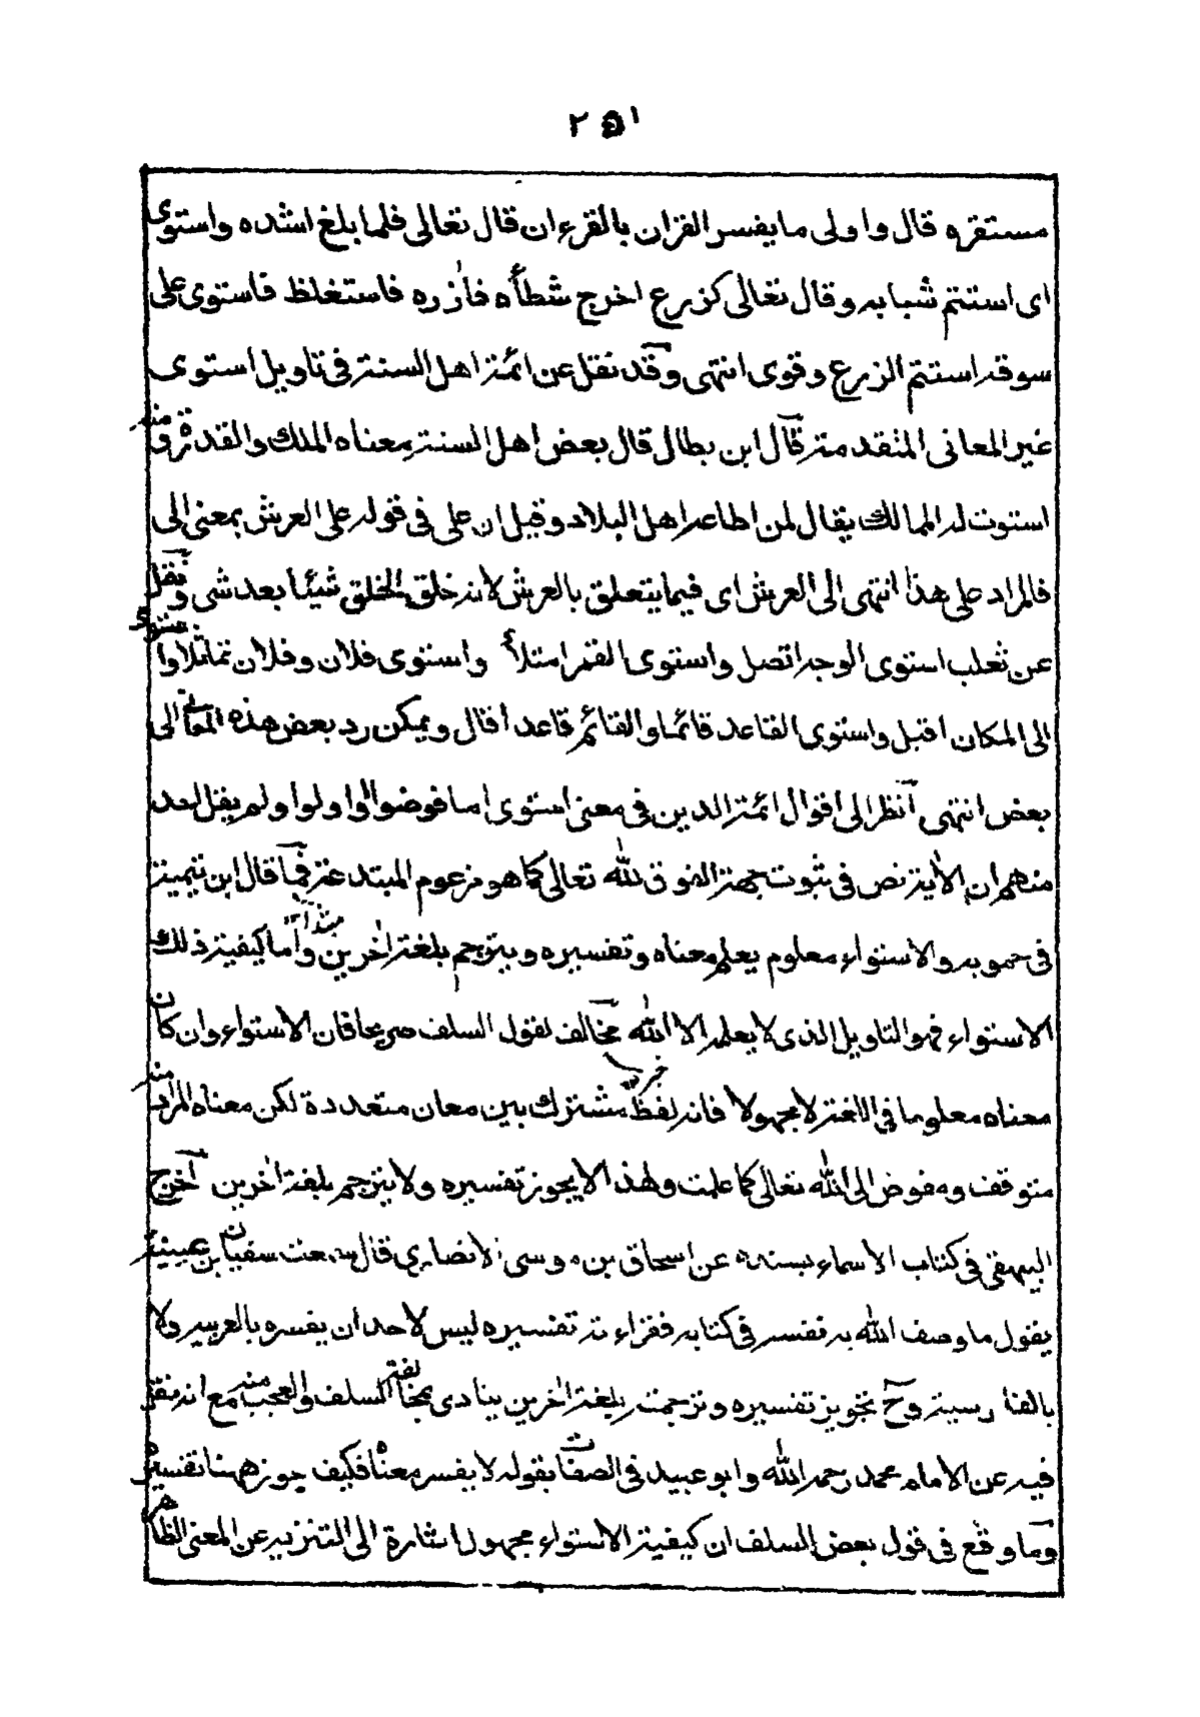 ٢٥١
مستقره قال واولى ما يفسر القران بالقرءان قال تعالى فلما بلغ اشده واستوى
اى استتم شبابه وقال تعالى كزرع اخرج شطأه فاٰزره فاستغلظ فاستوى على
سوقه استتم الزرع وقوى انتهى وقد نقل عن ائمة اهل السنة فى تاويل استوى
غير المعانى المتقدمة قال ابن بطال قال بعض اهل السنة معناه الملك والقدرة ومنه
استوت له الممالك يقال لمن اطاعه اهل البلاد وقيل ان على فى قوله على العرش بمعنى الى
فالمراد على هذا انتهى الى العرش اى فيما يتعلق بالعرش لانه خلق الخلق شيئا بعد شى ونقل
عن ثعلب استوى الوجه اتصل واستوى القمر امتلأ واستوى فلان وفلان تماثلا واستوى
الى المكان اقبل واستوى القاعد قائما والقائم قاعدا قال ويمكن رد بعض هذه المعانى الى
بعض انتهى انظر الى اقوال ائمة الدين فى معنى استوى اما فوضوا او اولوا ولم يقل احد
منهم ان الاٰية نص فى ثبوت جهة الفوق لله تعالى كما هو مزعوم المبتدعة فما قال ابن تيمية
فى حمويه والاستواء معلوم يعلم معناه وتفسيره ويترجم بلغة اٰخرين واما كيفية ذلك
مبتدا
الاستواء فهو التاويل الذى لا يعلمه الا الله مخالف لقول السلف صريحا فان الاستواء وان كان
خبر
معناه معلوما فى اللغة لا مجهولا فانه لفظ مشترك بين معان متعددة لكن معناه المراد منه
متوقف ومفوض الى الله تعالى كما علمت ولهذا لا يجوز تفسيره ولا يترجم بلغة اٰخرين اخرج
البيهقى فى كتاب الاسماء بسنده عن اسحاق بن موسى الانصارى قال سمعت سفيان بن عيينة
يقول ما وصف الله به نفسه فى كتابه فقراءته تفسيره ليس لاحد ان يفسره بالعربيه ولا
بالفارسية وح تجويز تفسيره وترجمته بلغة اٰخرين ينادى بمخالفة السلف والعجب منه مع انه نقل
فيه عن الامام محمد رحمه الله وابو عبيد فى الصفات بقوله لا يفسر معناه فكيف جوز ههنا تفسيره
وما وقع فى قول بعض السلف ان كيفية الاستواء مجهول اشارة الى التنزيه عن المعنى الظاهر